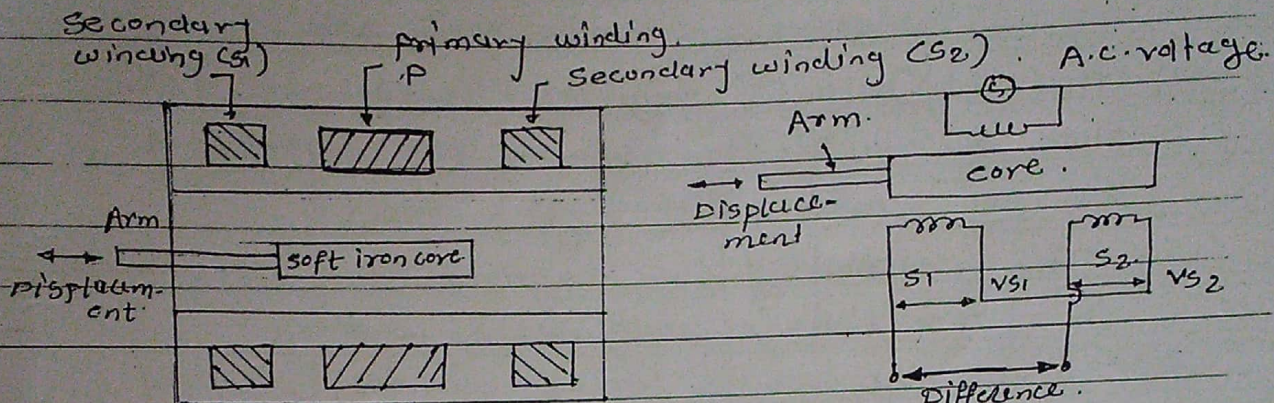 Secondary
winding (S1)
primary winding.
P
Secondary winding (S2).
A.C. voltage.
Arm.
core.
Displace-
ment
Arm
soft iron core
Displacem-
ent.
S1
VS1
S2.
VS2
Difference.